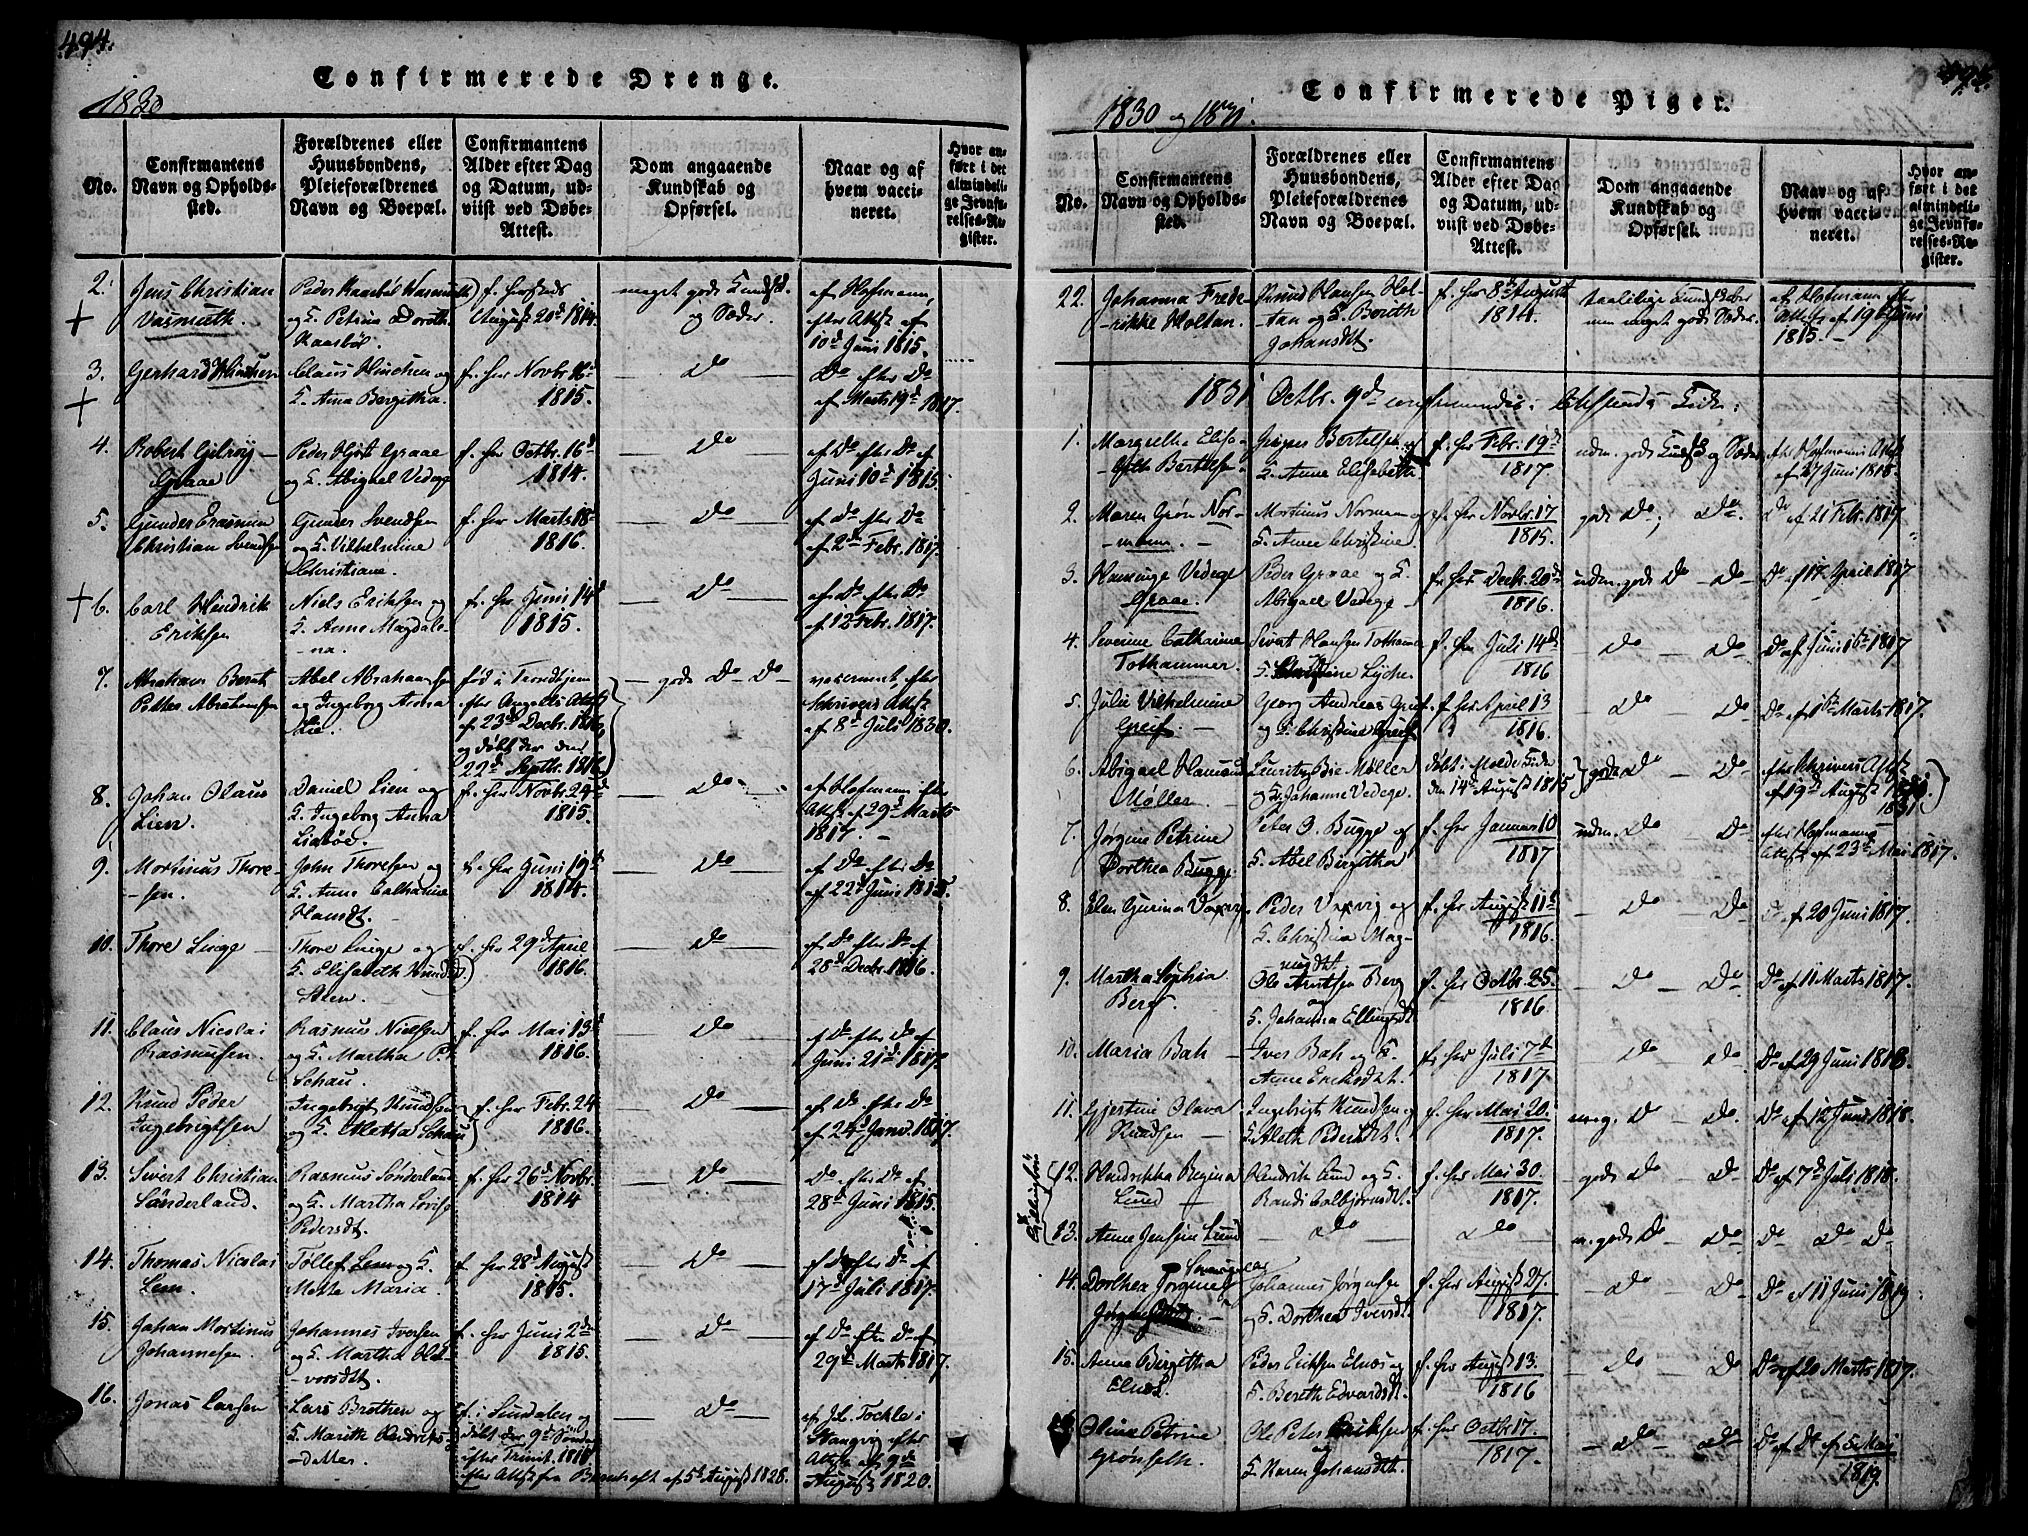 494.
Confirmerede Drenge.
1830
No.
Confirmantens
Navn og Opholds-
sted.
Forældrenes eller
Huusbondens,
Pleieforældrenes
Navn og Boepæl.
Confirmantens
Alder efter Dag
og Datum, ud-
viist ved Døbe-
Attest.
Dom angaaende
Kundskab og
Opførsel.
Naar og af
hvem vacci-
neret.
Hvor an-
ført i det
almindeli-
ge Jevnfø-
relses-Re-
gister.
2. Jens Christian
Vasmuth.
Peder Kaasbøl Wasmuth
og H. Petrina Doroth.
Kaasbøl.
August 20d 1814.
meget gode Kundsk.
og Sæder.
af Hofmann,
efter Attest af
10d Juni 1815.
3. Gerhard Hinchen
Claus Hinchen og
H. Anna Bergitha.
f. her Novbr. 16d
1815.
Do
Do efter Do
af Marts 19d 1817.
4. Robert Gilroy
Graae
Peder Hjort Graae
og H. Abigael Vedege
f. her Octbr. 16d
1814.
Do
af Do efter Do af
Juni 10d 1815.
5. Gunder Erasmus
Christian Svendsen
Gunder Svendsen
og H. Vilhelmine
Christiane.
f. her Marts 18
1816.
Do
af Do efter Do
af 2d Febr. 1817.
6. Carl Hendrik
Eriksen
Niels Eriksen og
H. Anne Magdale-
-na.
f. her Juni 14d
1815.
Do
af Do efter Do
af 12 Febr. 1817.
7. Abraham Bernt
Petter Abrahamsen
Abel Abrahamsen
og Ingeborg Anna
Lie.
fød i Trondhjem
efter Angells Attest
af 23d Decbr. 1816,
og døbt der den
22d Septbr. 1816
gode Do Do
vaccineret efter
Schrivers Attest
af 8d Juli 1830.
8. Johan Olaus
Lien.
Daniel Lien og
H. Ingeborg Anna
Liabøe.
f. her Novbr. 24d
1815.
Do
af Hofmann efter
Attest af 29d Marts
1817.
9. Mortinus Thore-
-sen.
John Thoresen og
H. Anne Catharine
Hansdt.
f. her Juni 19d
1814.
Do
af Do efter Do
af 22d Juni 1815.
10. Thore Linge
Thore Linge og
H. Elisabeth Knudsdt.
f. her 29d April
1816.
Do
af Do efter Do af
28d Decbr. 1816.
11. Claus Nicolai
Rasmusen.
Rasmus Nielsen
og H. Martha Pet.
Schau.
f. her Mai 13d
1816.
Do
af Do efter Do af
Juni 21d 1817.
12. Knud Peder
Ingebrigtsen
Ingebrigt Knudsen
og H. Aletta Schau
f. her Febr. 24
1816.
Do
af Do efter Do
af 24d Janv. 1817.
13. Sivert Christian
Sønderland.
Rasmus Sønderland
og H. Martha Lovise
Pedersdt.
f. her 26d Novbr.
1814
Do
Do efter Do af
28d Juni 1815.
14. Thomas Nicolai
Lem.
Tollef Lem og H.
Mette Maria.
f. her 28d August
1815.
Do
af Do efter Do af
17d Juli 1817.
15. Johan Mortinus
Johannesen
Johannes Iversen
og H. Martha Hal-
-vorsdt.
f. her Juni 2den
1815.
Do
af Do efter Do af
29d Marts 1817.
16. Jonas Larsen
Lars Brothen og
H. Marith Hendriks-
-datter.
f. i Sundalen og
døbt der 9d Sønd.
efter Trinit. 1811
efter Attest fra Barnhoft af 5d August 1828.
Do
af Jh. Tockle i
Stangvig efter
Attest af 9de
August 1820.
Confirmerede Piger.
1830 og 1831.
No.
Confirmantens
Navn og Opholds-
sted.
Forældrenes eller
Huusbondens,
Pleieforældrenes
Navn og Boepæl.
Confirmantens
Alder efter Dag
og Datum, ud-
viist ved Døbe-
Attest.
Dom angaaende
Kundskab og
Opførsel.
Naar og af
hvem vacci-
neret.
Hvor an-
ført i det
almindeli-
ge Jevnfø-
relses-Re-
gister.
22. Johanna Frede-
-rikke Holtan.
Knud Hansen Hol-
-tan og H. Berith
Johansdt.
f. her 8d August
1814.
taalelige Kundskaber
men meget gode Sæder.
af Hofmann efter
Attest af 19d Juni
1815.
1831 Octbr. 9d confirmeredes i Kirke:
1. Margrethe Elisa-
-beth Bertelsen
Bertelsen og
H. Anne Elisabeth
f. her Febr. 19d
1817
udm. gode Kundsk. og Sæder
efter Hofmanns Attest
af 27 Juni 1818.
2. Maren Grøn Nor-
-mann.
Mortinus Normann og
H. Anne Christine.
f. her Novbr. 17
1815.
gode Do; Do.
Do af 21 Febr. 1817
3. Haminge Vedege
Graae.
Peder Graae og H.
Abigael Vedege
f. her Decbr. 20d
1816.
udm. gode Do Do
Do af 17 April 1817
4. Severine Cathrine
Tothammer
Sivert Hansen Tothammer
H. Christine Lyche.
f. her Juli 14d
1816
Do Do
Do af Juni 16d 1817
5. Julie Vilhelmine
Greif.
Georg Andreas Greif
og H. Christine Greif
f. her April 13
1816.
Do Do
Do af 1d Marts 1817.
6. Abigael Hamine
Møller
Lauritz Bie Møller
og H. Johanne Vedege.
døbt i Molde Kirke
den 14d August 1815
gode Do Do
efter Schrivers Attest
af 19d August
1831
7. Jørgine Petrine
Dorthea Bugge
Peter O. Bugge og
H. Abel Birgitha
f. her Januar 10
1817
udm. Do Do
efter Hofmanns
Attest af 23d Mai 1817.
8. Elen Gurina Vaxvig.
Peder Vaxvig og
H. Christina Mag-
-nusdt
f. her August 11d
1816.
Do Do
Do af 20 Juni 1817.
9. Martha Sophia
Berg.
Ole Arntsen Berg
H. Johanna Ellingsdt
f. her Octbr. 25.
1816
Do Do
Do af 11 Marts 1817.
10. Maria Bah
Iver Bah og H.
Anne Eriksdt.
f. her Juli 7d
1817
Do Do
Do af 29 Juni 1818.
11. Gjertine Olava
Knudsen
Ingebrigt Knudsen og
H. Aleth Pedersdt.
f. her Mai 20.
1817.
meg. Do Do.
Do af 12 Juni 1818.
12. Hendrikka Regina
Lund
Hendrik Lund og H.
Randi Colbjørnsdt.
f. her Mai 30.
1817.
gode Do Do
Do af 7d Juli 1818.
13. Anne Jensine Lund
Do
Do
m. gode Do Do
Do Do Do
14. Dorthea Jørgine
Johannes Jørgensen
og H. Dorthea Iversdt
f. her August 27.
1817.
Do Do
Do af 11 Juni 1819.
15. Anne Birgitha
Elnes.
Peder Eriksen Elnes og
H. Berethe Edvardsdt.
f. her August 13.
1816
Do Do
Do af 20 Marts 1817.
Oline Petrine
Grønseth.
Ole Peter Eriksen
og
H. Karen Johansdt.
f. her Octbr. 17.
1817.
Do Do
Do af Do af 5 Mai
1819.